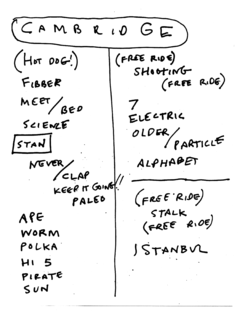 CAMBRIDGE
(HOT DOG!)
FIBBER
MEET/BED
SCIENZE
STAN
NEVER/CLAP
KEEP IT GOING!!
PALEO
APE
WORM
POLKA
HI 5
PIRATE
SUN
(FREE RIDE)
SHOOTING
(FREE RIDE)
7
ELECTRIC
OLDER/PARTICLE
ALPHABET
(FREE RIDE)
STALK
(FREE RIDE)
ISTANBUL